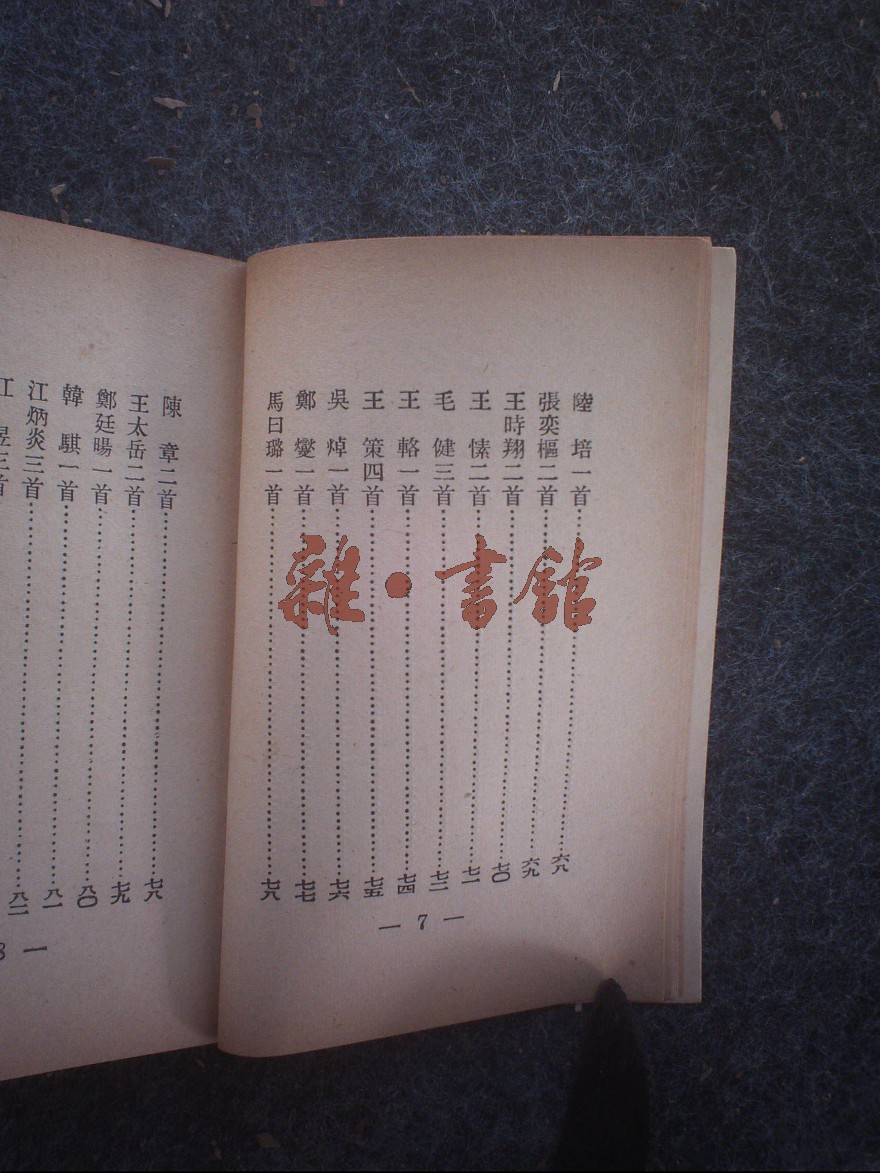 陸 培一首……六八
張奕樞二首……六九
王時翔二首……七〇
王 愫二首……七一
毛 健三首……七三
王 輅一首……七四
王 策四首……七五
吳 焯一首……七六
鄭 燮一首……七七
馬曰璐一首……七八
— 7 —
陳 章二首……七八
王太岳二首……七九
鄭廷暘一首……八〇
韓 騏一首……八一
江炳炎三首……八二
江 昱三首
8 —
雜·書館